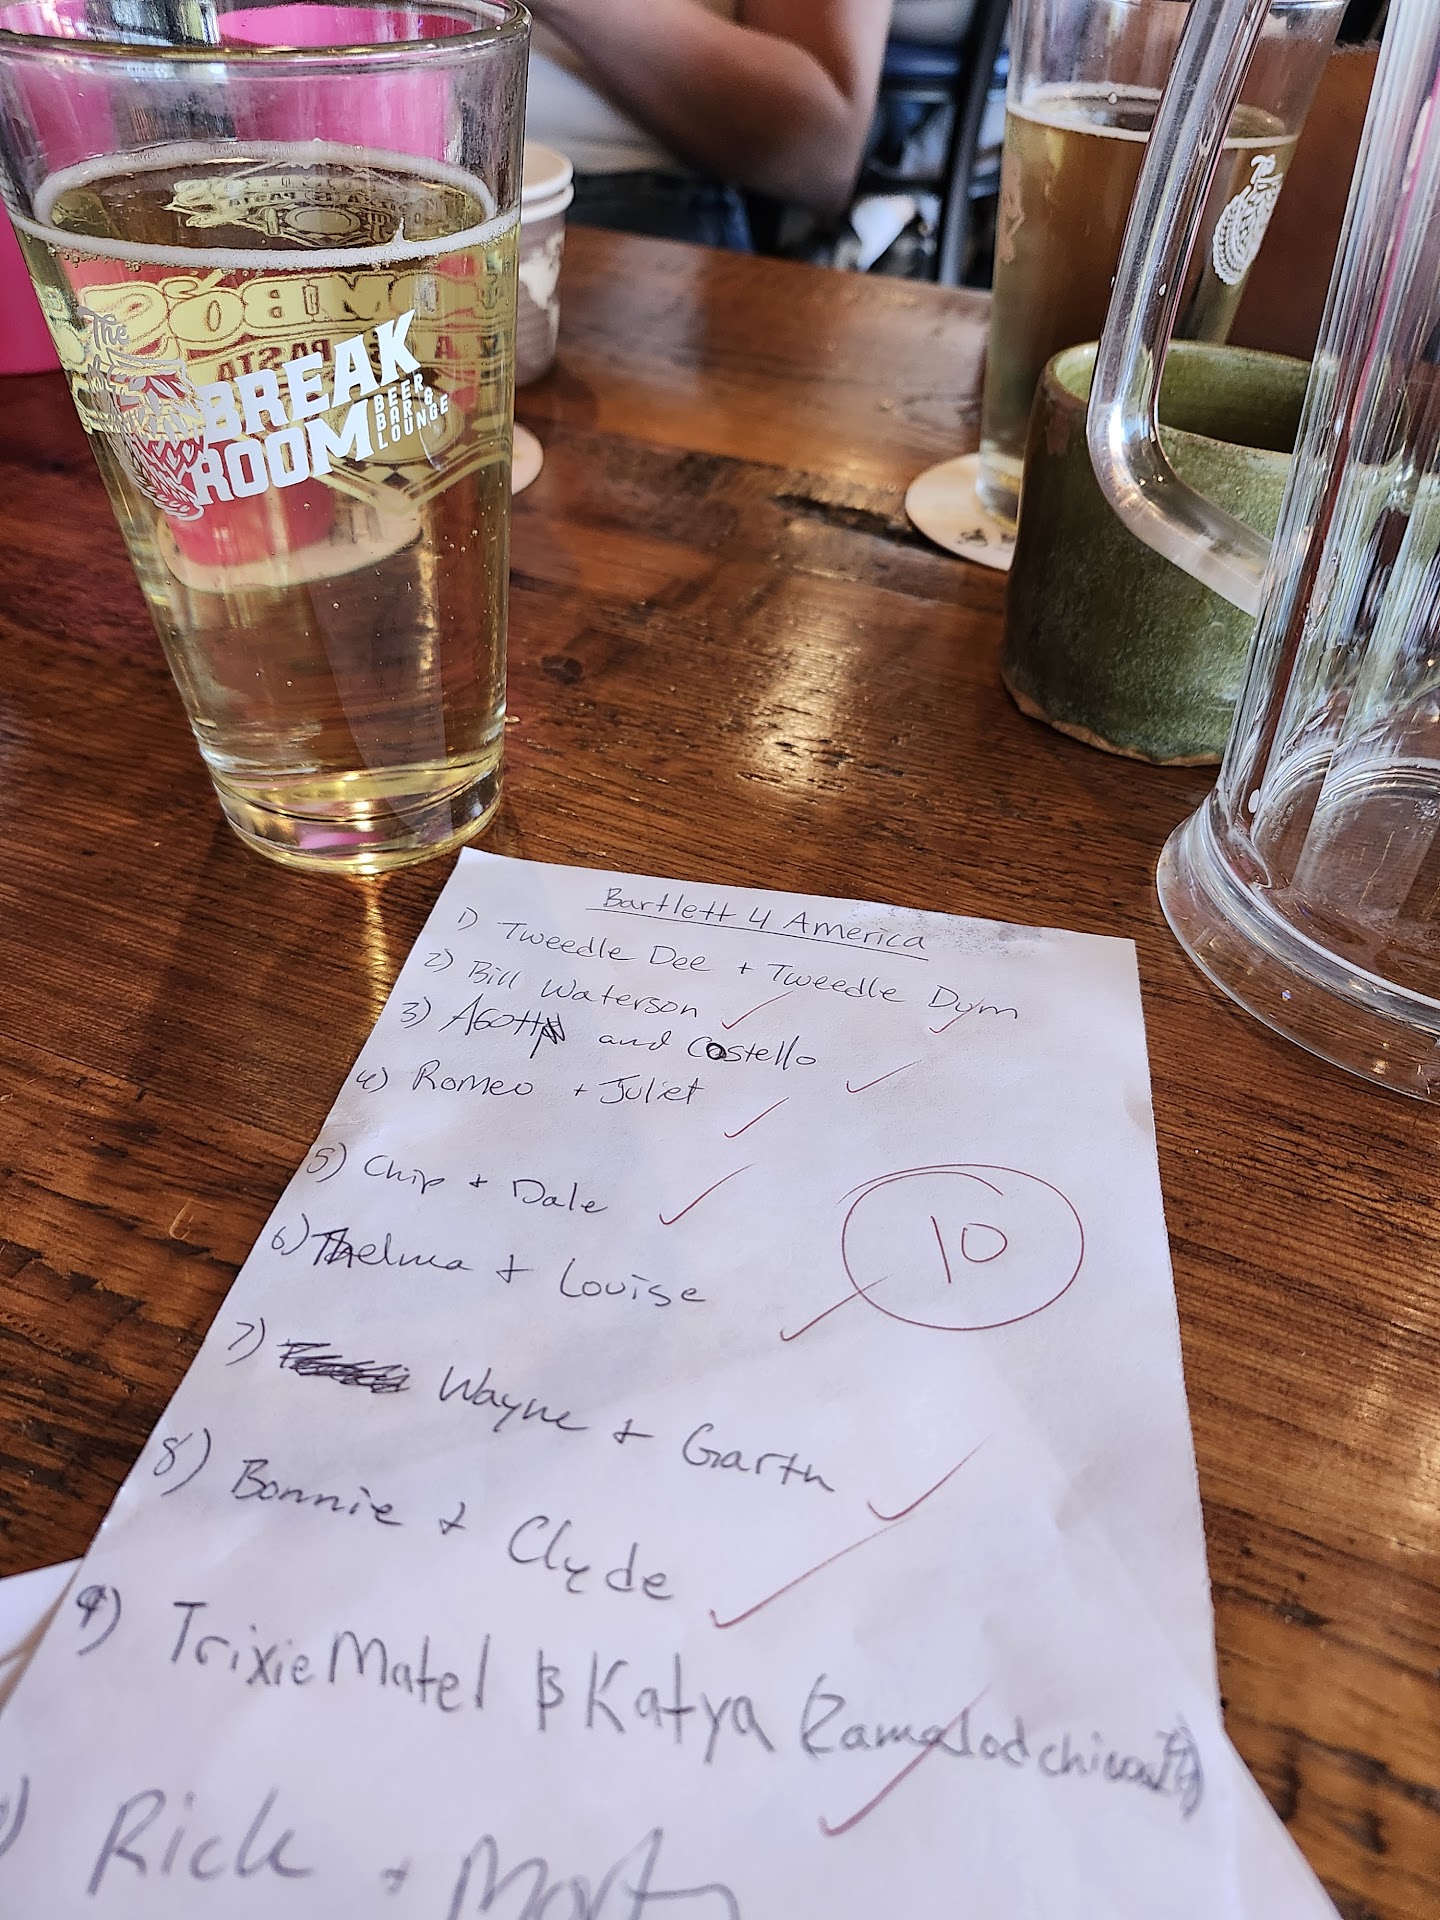 The
BREAK
ROOM
BEER
BAR &
LOUNGE
The
Bartlett 4 America
1) Tweedle Dee + Tweedle Dum
2) Bill Waterson
3) and Costello
4) Romeo + Juliet
5) Chip + Dale
6) Thelma + Louise
10
7) Wayne + Garth
8) Bonnie + Clyde
9) Trixie Matel & Katya
) Rick + Morty